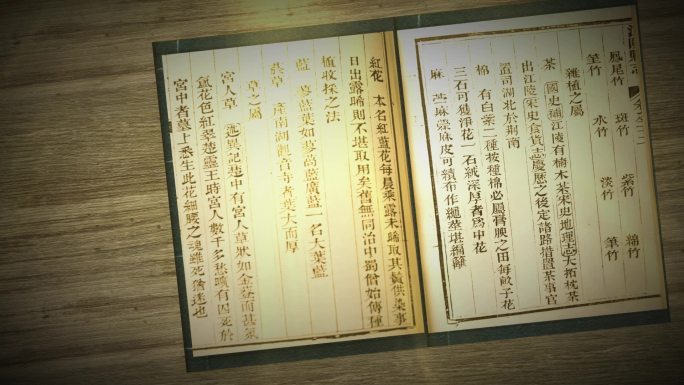 鳳尾竹 斑竹 紫竹 綿竹
筀竹 水竹 淡竹 筆竹
雜植之屬
茶 國史補江陵有楠木茶宋史地理志大拓枕茶
出江陵宋史食貨志慶歷之後定諸路措置茶事官
置司湖北於荆南
棉 有白紫二種按種棉必屬膏腴之田每畝子花
三石可獲淨花一石絨深厚者為中花
麻 苎麻檾麻皮可績布作繩檾堪編離
紅花 本名紅藍花每晨乘露未晞取其鬚供染事
日出露晞則不堪取用矣舊無同治中蜀僧始傳種
植收採之法
藍 蓼藍葉如蓼崗藍廣藍一名大葉藍
菸草 產南湖觀音寺者葉大而厚
草之屬
宮人草 述異記楚中有宮人草狀如金𦶜而甚氛
氳花色紅翠楚靈王時宮人數千多愁曠有因死於
宮中者墓上悉生此花細腰之魂雖死猶迷也